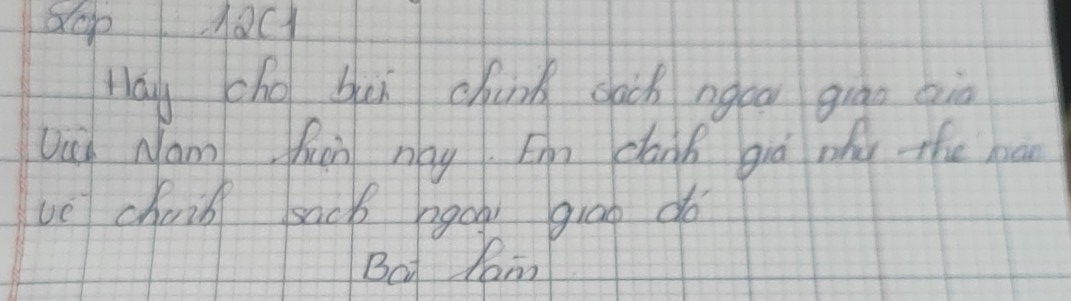 Lớp 12C1
Hãy cho biết chính sách ngoại giao của
Việt Nam hiện nay. Em đánh giá như thế nào
về chính sách ngoại giao đó
Bài làm